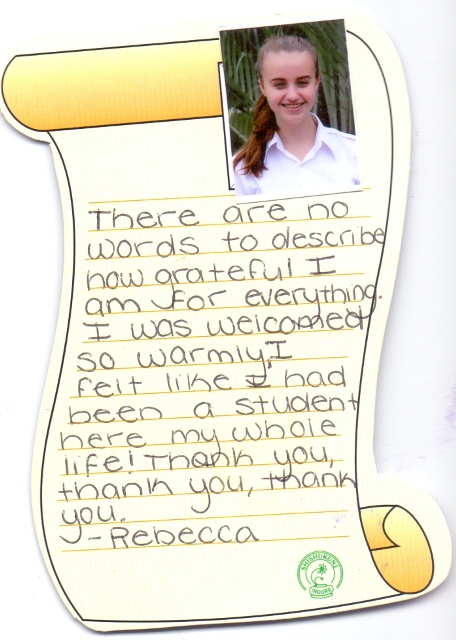 There are no
words to describe
how grateful I
am for everything.
I was welcomed
so warmly, I
felt like I had
been a student
here my whole
life! Thank you,
thank you, thank
you.
- Rebecca
SHISHUKUNJ
INDORE